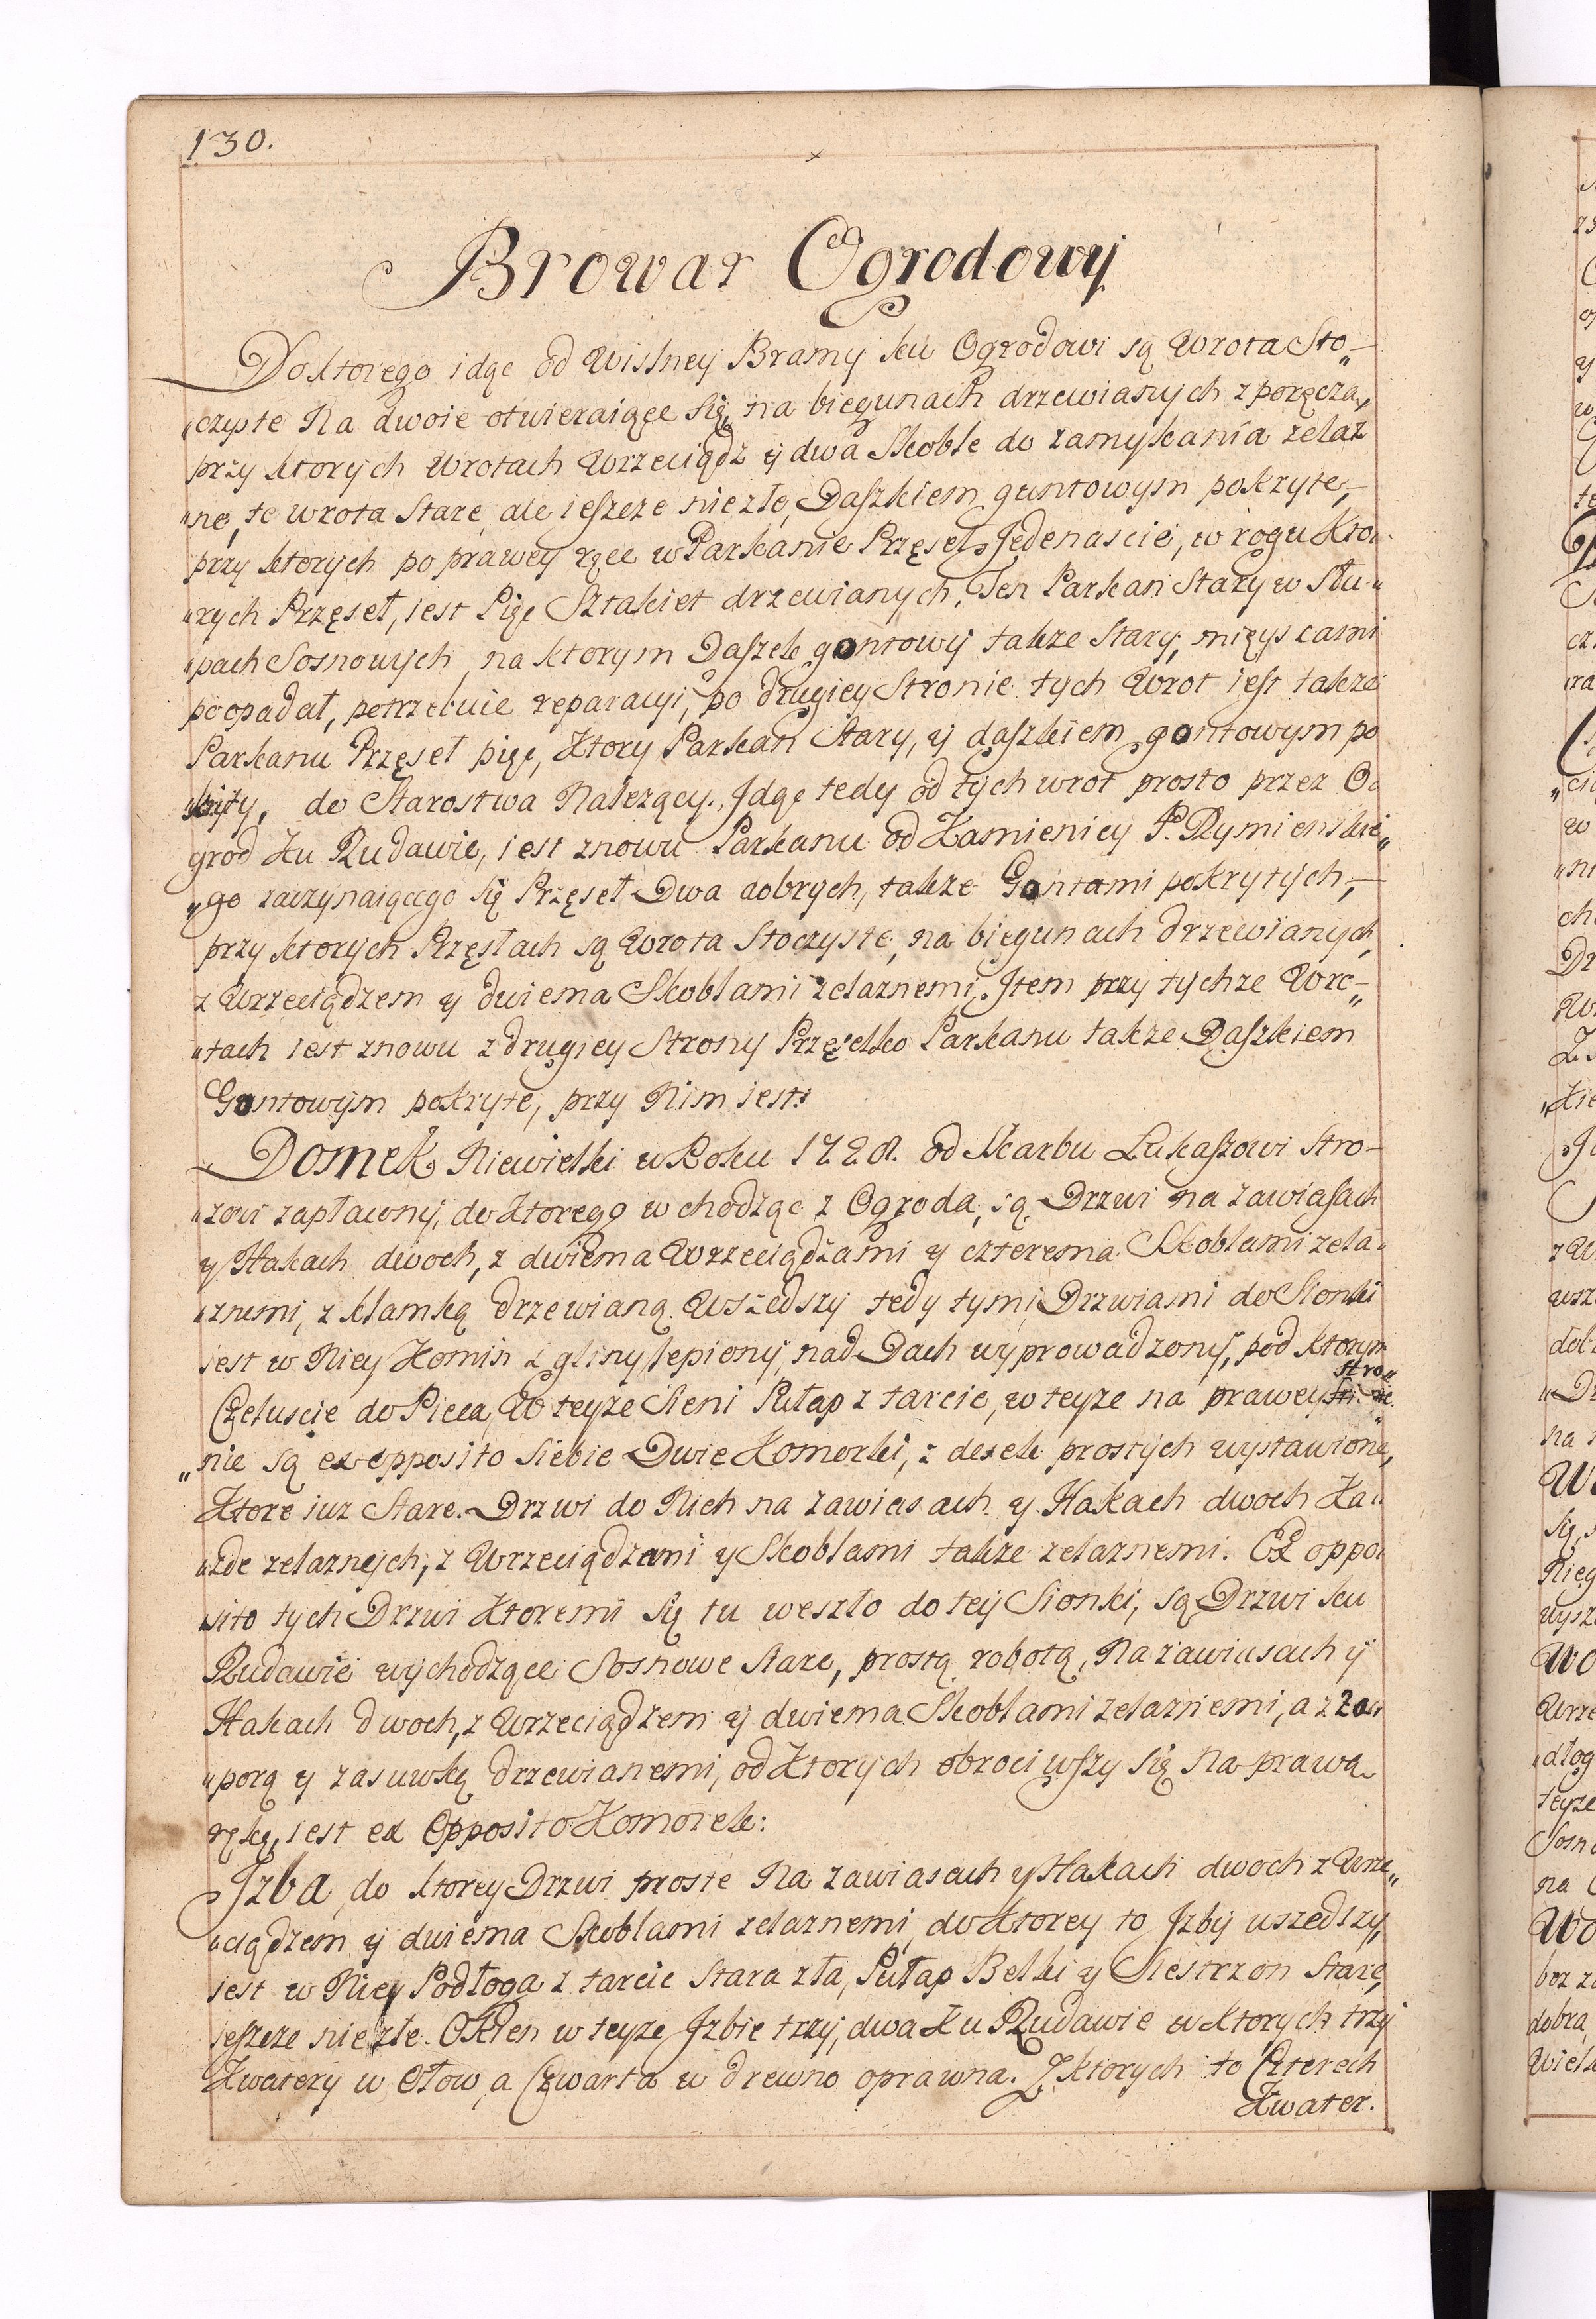 130.
Browar Ogrodowy
Do ktorego idąc od Wislney Bramy ku Ogrodowi są Wrota Sto„
„czyste Na dwoie otwieraiące się, na biegunach drzewianych z poręczą,
przy ktorych Wrotach Wrzeciądz y dwa Skoble do zamykania zelaz
„ne, te wrota Stare ale ieszcze niezłe, Daszkiem gontowym pokryte,
przy ktorych po prawey ręce w Parkanie Przęseł Jedenascie, w rogu Kto„
„rych Przęseł, iest Pięć Sztakiet drzewianych. Ten Parkan Stary w Słu„
„pach Sosnowych, na ktorym Daszek gontowy takze Stary, mieyscami
poopadał, potrzebuie reparacyi, po drugiey Stronie tych Wrot iest takze
Parkanu Przęseł pięć, Ktory Parkan Stary, y daszkiem gontowym po
„kryty, do Starostwa Nalezący. Idąc tedy od tych wrot prosto przez O„
grod Ku Rudawie, iest znowu Parkanu od Kamienicy P. Rymienskie„
„go zaczynaiącego się Przęseł Dwa dobrych, takze Gontami pokrytych,
przy ktorych Przęsłach są Wrota Stoczyste, na biegunach drzewianych,
z Wrzeciądzem y dwiema Skoblami zelaznemi. Item przy tychze Wro„
„tach iest znowu z drugiey Strony Przęsełko Parkanu takze Daszkiem
Gontowym pokryte, przy Nim iest:
Domek Niewielki w Roku 1728. od Skarbu Lukaszowi Stro„
„zowi zapłacony, do Ktorego wchodząc z Ogroda, są Drzwi na zawiasach
y Hakach dwoch, z dwiema Wrzeciądzami y czterema Skoblami zela„
„znemi, z klamką drzewianą. Wszedszy tedy tymi Drzwiami do Sionki
iest w Niey Komin z gliny lepiony nad Dach wyprowadzony, pod ktorym
Czeluscie do Pieca, W teyze Sieni Pułap z tarcic, w teyze na prawey stro„
„nie są ex opposito siebie Dwie Komorki, z desek prostych wystawione,
Ktore iuz Stare. Drzwi do Nich na zawiasach y Hakach dwoch Ka„
„zde zelaznych, z Wrzeciądzami y Skoblami takze zelaznemi. Ex oppo„
„sito tych Drzwi Ktoremi się tu weszło do tey Sionki, są Drzwi ku
Rudawie wychodzące Sosnowe stare, prostą robotą, Na zawiasach y
Hakach dwoch, z Wrzeciądzem y dwiema Skoblami zelaznemi, a z za„
„porą y zasuwką drzewianemi, od Ktorych obrociwszy się Na prawą
rękę, iest ex Opposito Komorek:
Izba, do ktorey Drzwi proste Na zawiasach y Hakach dwoch z Wrze„
„ciądzem y dwiema Skoblami zelaznemi, do Ktorey to Izby wszedszy,
iest w Niey Podłoga z tarcic stara zła, Pułap Belki y Siestrzon Stare,
ieszcze niezłe. Okien w teyze Izbie trzy, dwa Ku Rudawie w ktorych trzy
Kwatery w Ołow, a Czwarta w drewno oprawna. Z ktorych to Czterech
Kwater.